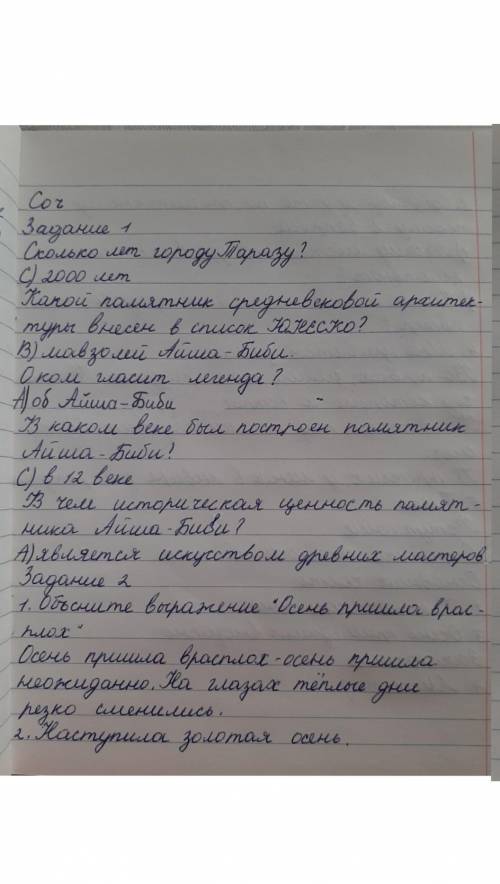 Соч
Задание 1
Сколько лет городу Таразу?
С) 2000 лет
Какой памятник средневековой архитек-
туры внесен в список ЮНЕСКО?
В) мавзолей Айша-Биби.
О ком гласит легенда?
А) об Айша-Биби
В каком веке был построен памятник
Айша-Биби?
С) в 12 веке
В чем историческая ценность памят-
ника Айша-Биби?
А) является искусством древних мастеров
Задание 2
1. Объсните выражение "Осень пришла врас-
плох"
Осень пришла врасплох-осень пришла
неожиданно. На глазах тёплые дни
резко сменились.
2. Наступила золотая осень.